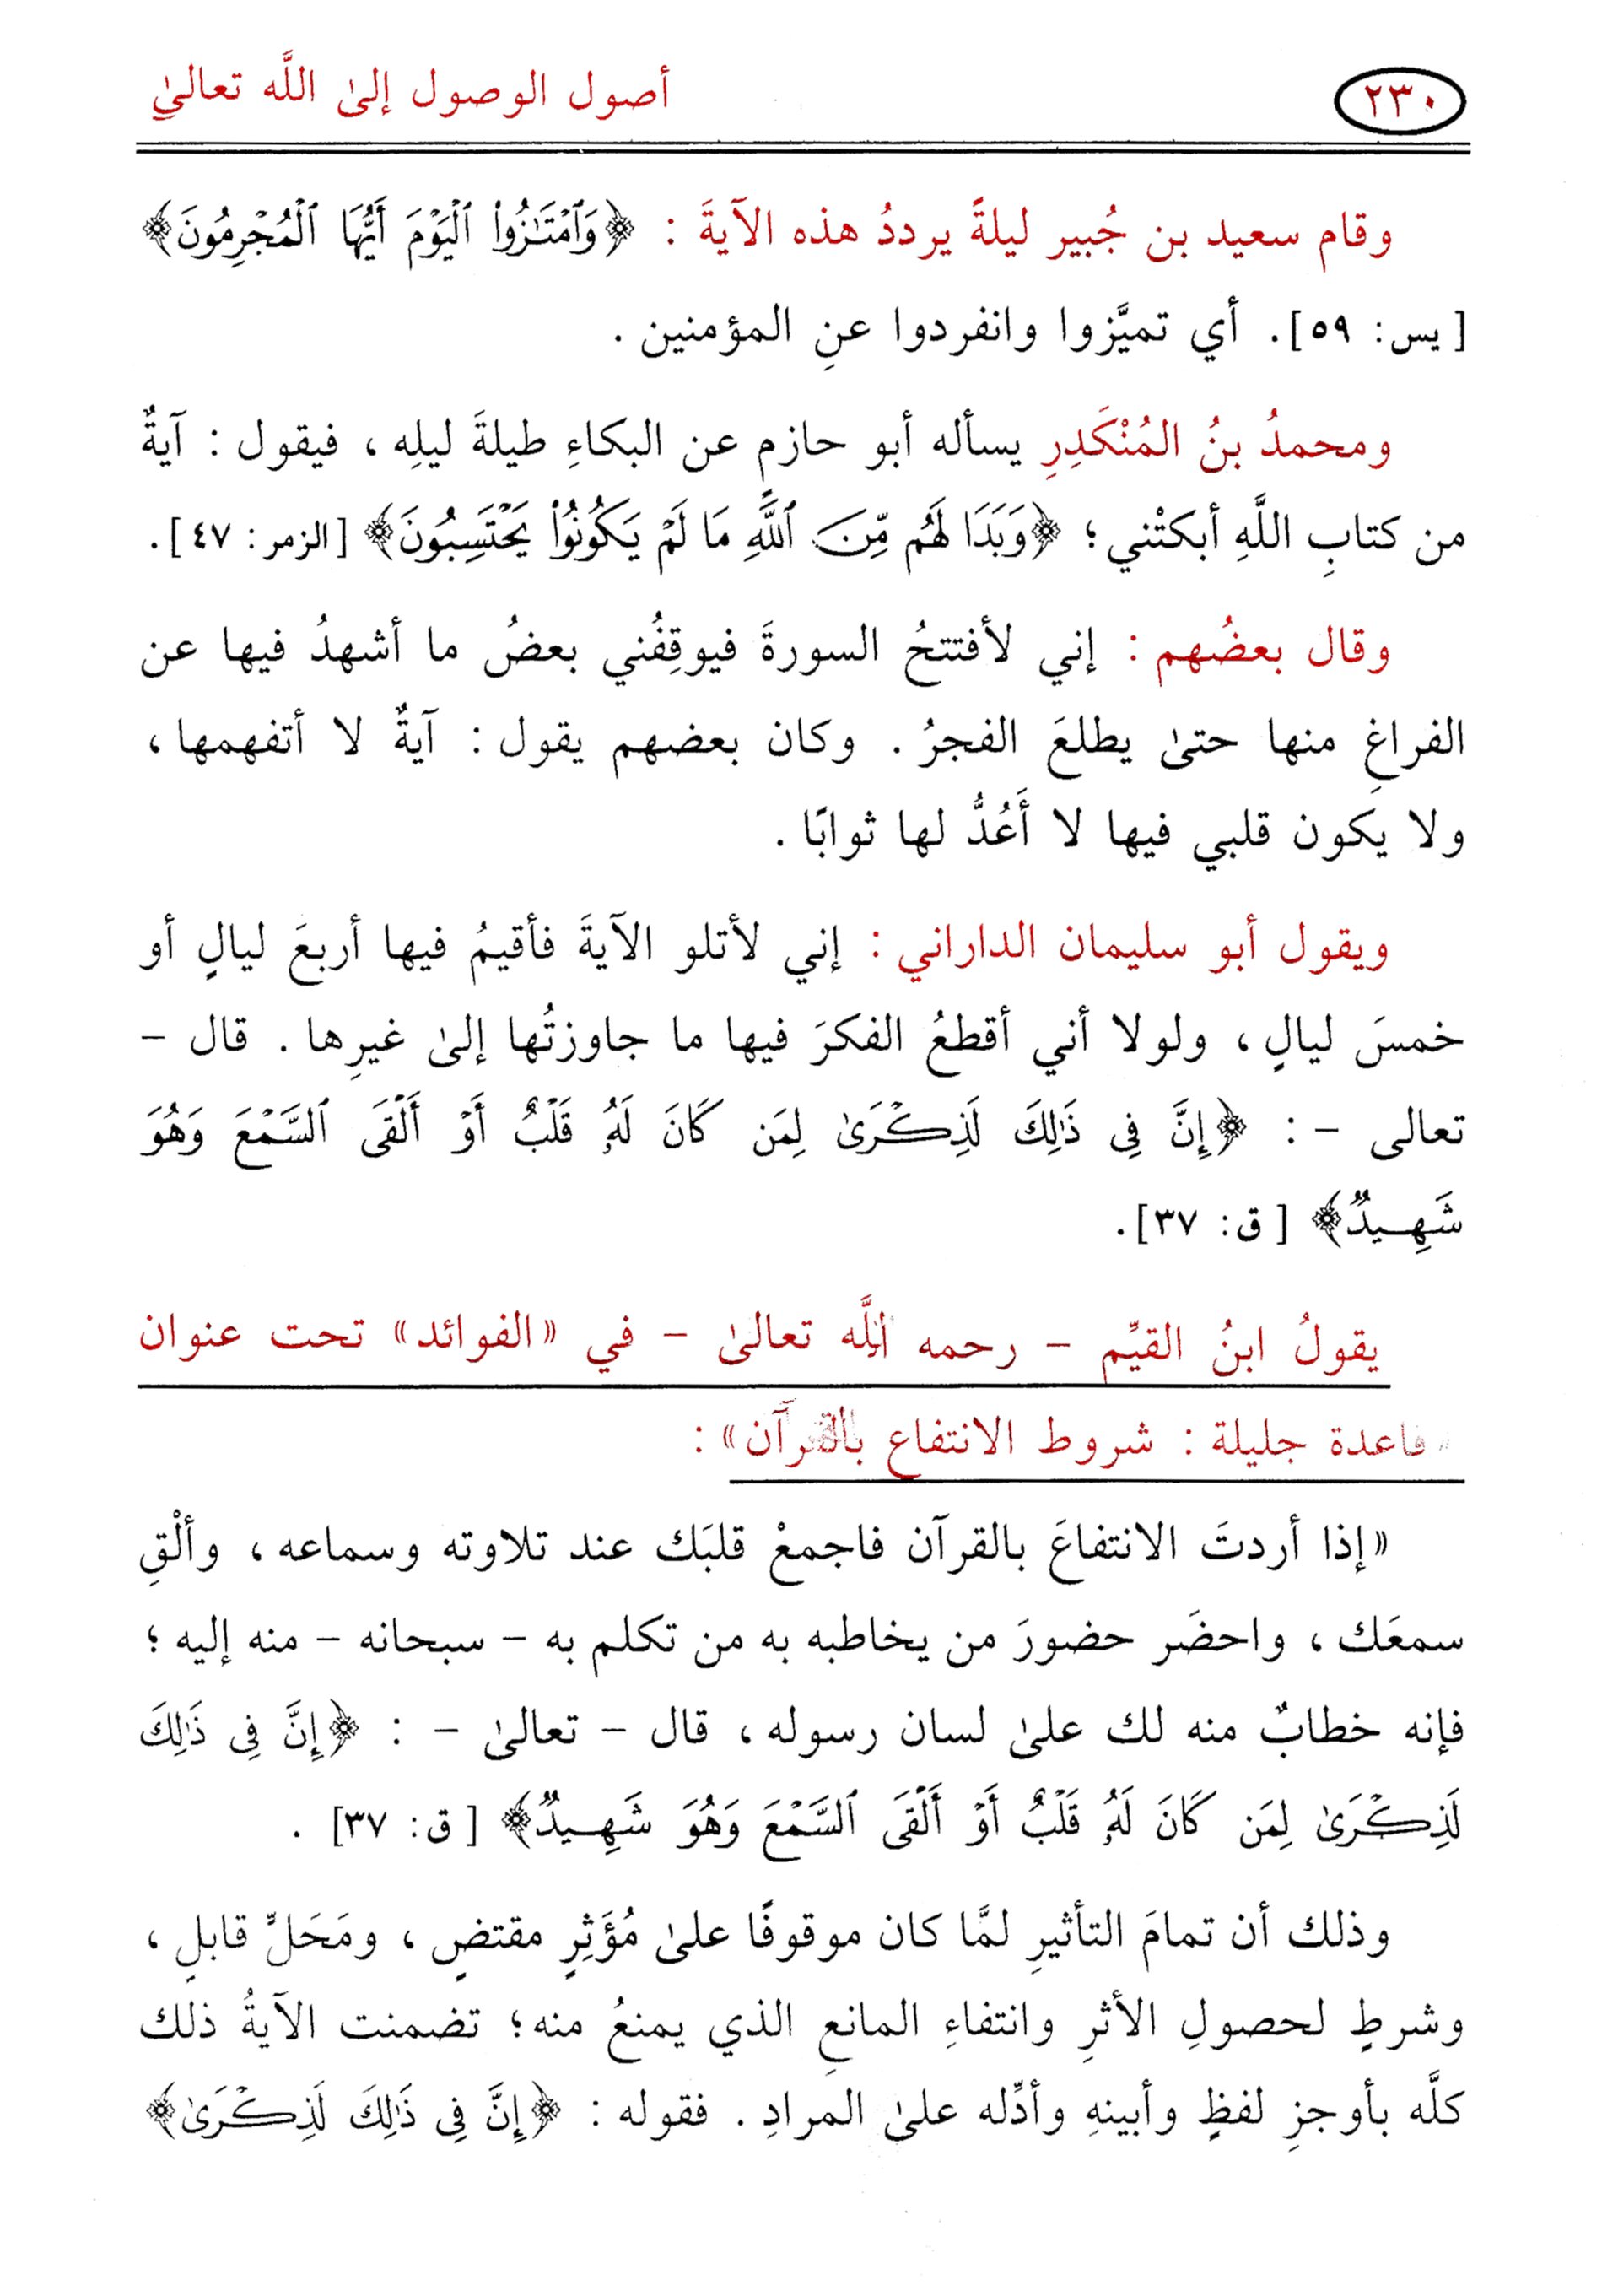 ٢٣٠
أصول الوصول إلىٰ اللَّه تعالىٰ
وقام سعيد بن جُبير ليلةً يرددُ هذه الآيةَ : ﴿وَٱمْتَٰزُوا۟ ٱلْيَوْمَ أَيُّهَا ٱلْمُجْرِمُونَ﴾
[ يس: ٥٩]. أي تميَّزوا وانفردوا عنِ المؤمنين .
ومحمدُ بنُ المُنْكَدِرِ يسأله أبو حازمٍ عن البكاءِ طيلةَ ليلِه ، فيقول : آيةٌ
من كتابِ اللَّهِ أبكتْني ؛ ﴿وَبَدَا لَهُم مِّنَ ٱللَّهِ مَا لَمْ يَكُونُوا۟ يَحْتَسِبُونَ﴾ [الزمر: ٤٧].
وقال بعضُهم : إني لأفتتحُ السورةَ فيوقِفُني بعضُ ما أشهدُ فيها عن
الفراغِ منها حتىٰ يطلعَ الفجرُ . وكان بعضهم يقول : آيةٌ لا أتفهمها ،
ولا يكون قلبي فيها لا أَعُدُّ لها ثوابًا .
ويقول أبو سليمان الداراني : إني لأتلو الآيةَ فأقيمُ فيها أربعَ ليالٍ أو
خمسَ ليالٍ ، ولولا أني أقطعُ الفكرَ فيها ما جاوزتُها إلىٰ غيرِها . قال –
تعالى – : ﴿إِنَّ فِى ذَٰلِكَ لَذِكْرَىٰ لِمَن كَانَ لَهُۥ قَلْبٌ أَوْ أَلْقَى ٱلسَّمْعَ وَهُوَ
شَهِيدٌ﴾ [ ق: ٣٧].
يقولُ ابنُ القيِّم – رحمه اللَّه تعالىٰ – في «الفوائد» تحت عنوان
«قاعدة جليلة : شروط الانتفاع بالقرآن» :
«إذا أردتَ الانتفاعَ بالقرآن فاجمعْ قلبَك عند تلاوته وسماعه ، وألْقِ
سمعَك ، واحضَر حضورَ من يخاطبه به من تكلم به – سبحانه – منه إليه ؛
فإنه خطابٌ منه لك علىٰ لسان رسوله ، قال – تعالىٰ – : ﴿إِنَّ فِى ذَٰلِكَ
لَذِكْرَىٰ لِمَن كَانَ لَهُۥ قَلْبٌ أَوْ أَلْقَى ٱلسَّمْعَ وَهُوَ شَهِيدٌ﴾ [ ق: ٣٧] .
وذلك أن تمامَ التأثيرِ لمَّا كان موقوفًا علىٰ مُؤَثِرٍ مقتضٍ ، ومَحَلٍّ قابلٍ ،
وشرطٍ لحصولِ الأثرِ وانتفاءِ المانعِ الذي يمنعُ منه ؛ تضمنت الآيةُ ذلك
كلَّه بأوجزِ لفظٍ وأبينهِ وأدِّله علىٰ المرادِ . فقوله : ﴿إِنَّ فِى ذَٰلِكَ لَذِكْرَىٰ﴾